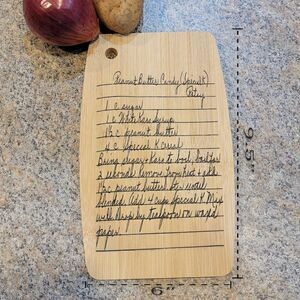 Peanut Butter Candy (Special K)
Patsy
1 c sugar
1 c White Karo Syrup
1½ c peanut butter
4 c Special K Cereal
Bring sugar + Karo to boil, boil for
2 seconds remove from heat + add
1½ c peanut butter. Stir until
blended. Add 4 cups Special K. Mix
well. Drop by teaspoon on waxed
paper.
9.5"
6"